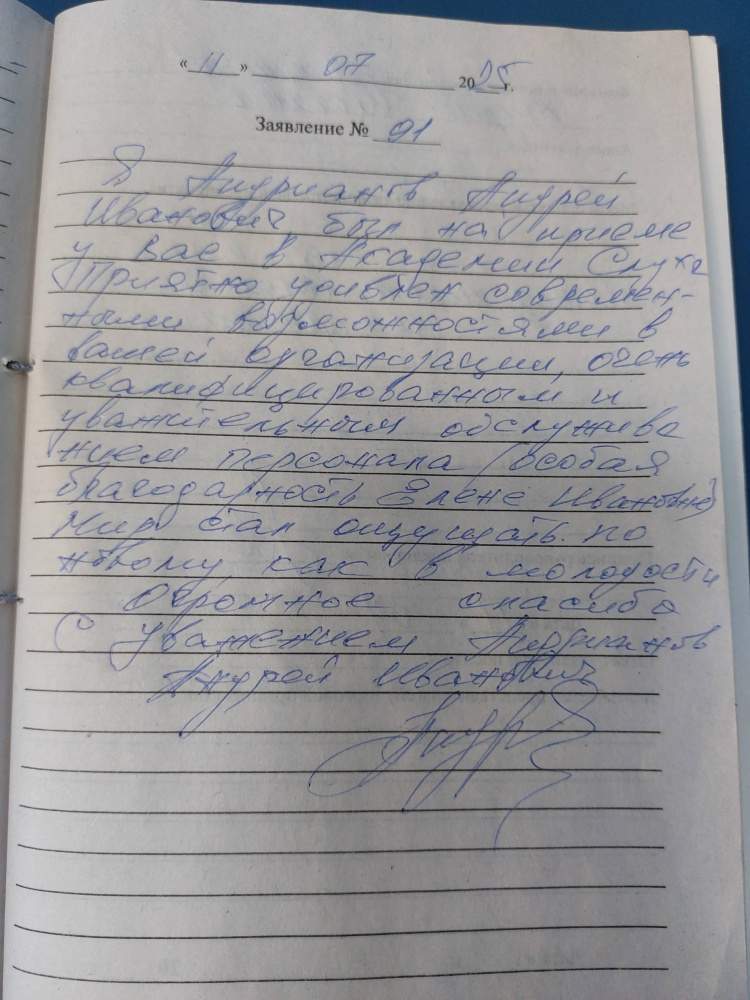 «11» 07 2025 г.
Заявление № 91
Я Андрианов Андрей
Иванович был на приеме
у вас в Академии Слуха
Приятно удивлен современ-
ными возможностями в
вашей организации, очень
квалифицированным и
уважительным обслужива
нием персонала (особая
благодарность Елене Ивановне)
Мир стал ощущать по
новому как в молодости
Огромное спасибо
С уважением Андрианов
Андрей Иванович